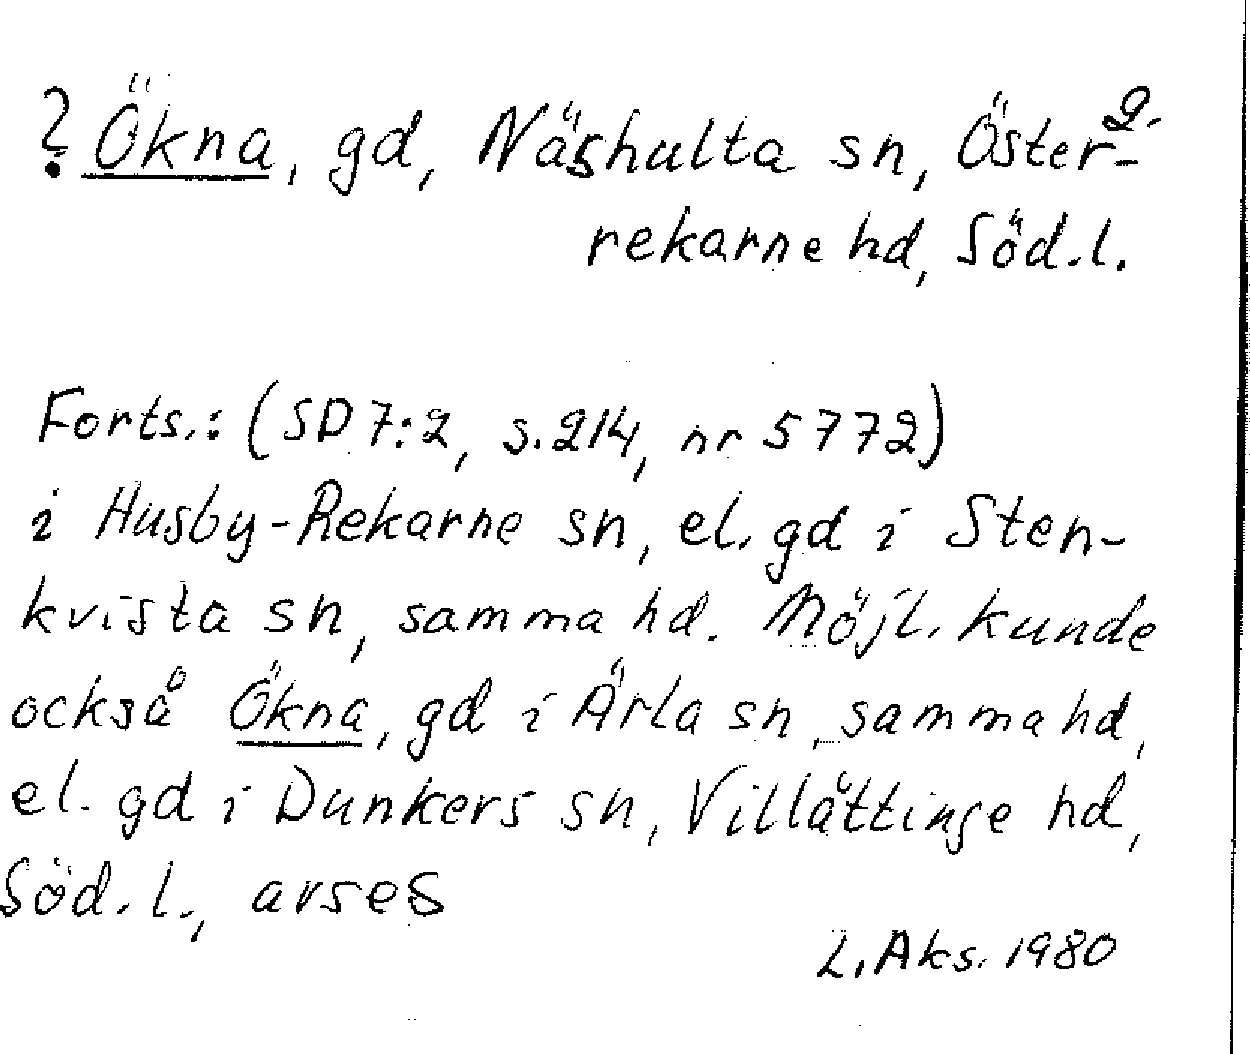 2.
? Ökna, gd, Näshulta sn, Öster-
rekarne hd, Söd.l.
Forts.: (SD 7:2, s.214, nr 5772)
i Husby-Rekarne sn, el. gd i Sten-
kvista sn, samma hd. Möjl. kunde
också Ökna, gd i Ärla sn, samma hd,
el. gd i Dunkers sn, Villåttinge hd,
Söd.l., avses
L. Aks. 1980